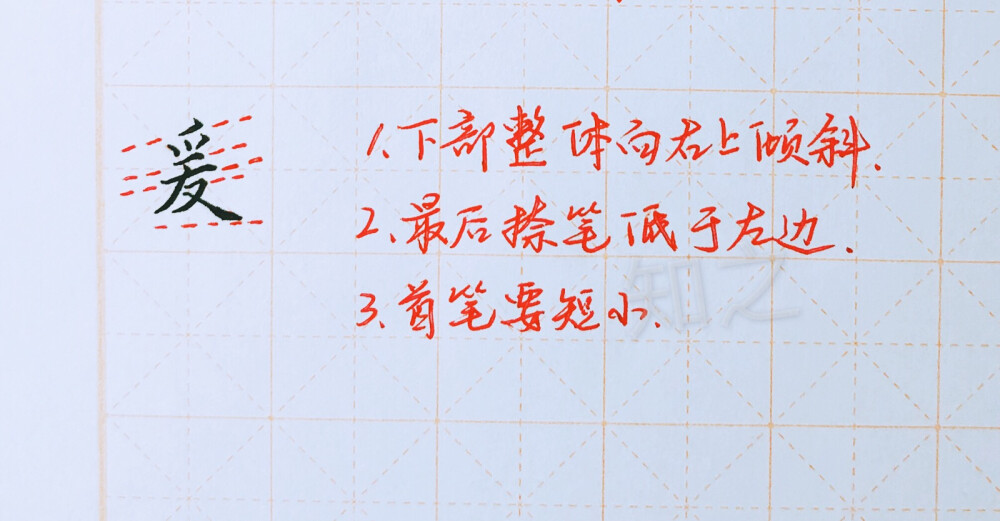 爰
1.下部整体向右上倾斜.
2、最后捺笔低于左边.
3、首笔要短小.
知之